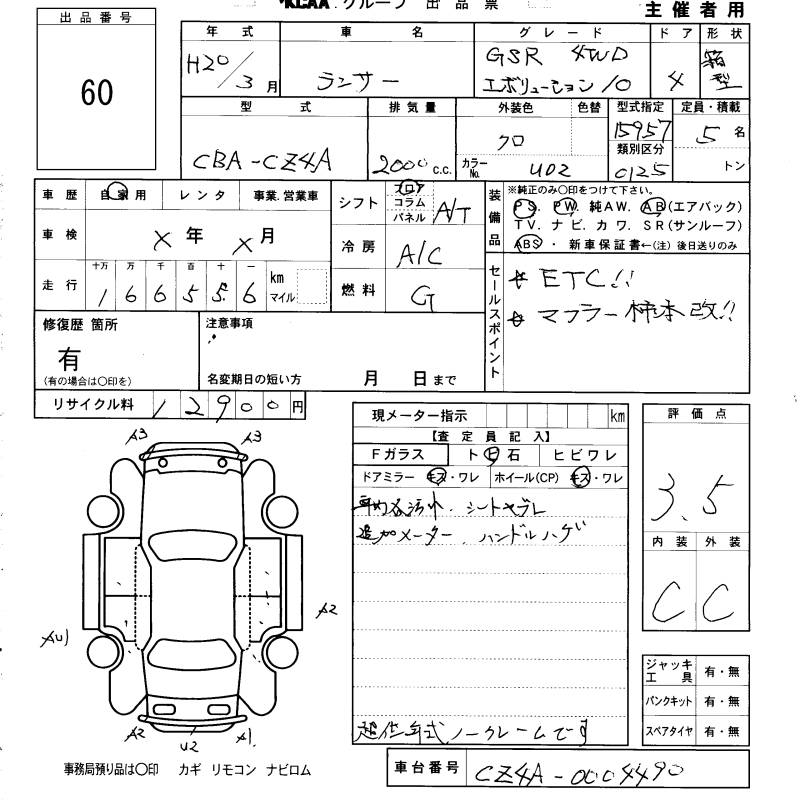 KCAA グループ 出品票
主催者用
出品番号
60
年式 車名 グレード ドア 形状
H20/3月 ランサー GSR 4WD エボリューション10 4 箱型
型式 排気量 外装色 色替 型式指定 定員・積載
CBA-CZ4A 2000 c.c. クロ 15957 5名
カラーNo. U02 類別区分 0125 トン
車歴 自家用 レンタ 事業.営業車
シフト フロア コラム パネル A/T
車検 X年X月
冷房 A/C
走行 十万 万 千 百 十 一 km マイル
166556
燃料 G
装備品 ※純正のみ〇印をつけて下さい。
PS. PW. 純AW. AB(エアバック)
TV. ナビ. カワ. SR(サンルーフ)
ABS・新車保証書←(注)後日送りのみ
セールスポイント
☆ ETC!!
☆ マフラー柿本改!!
修復歴 箇所
有
(有の場合は〇印を)
注意事項
名変期日の短い方 月 日まで
リサイクル料 12900円
現メーター指示 km
【査定員記入】
Fガラス ト ビ 石 ヒビワレ
ドアミラー キズ・ワレ ホイール(CP) キズ・ワレ
車内各汚れ. シートヤブレ
追加メーター. ハンドルハゲ
超低年式ノークレームです
評価点
3.5
内装 外装
C C
ジャッキ工具 有・無
パンクキット 有・無
スペアタイヤ 有・無
A3 A3
AU1 A2
A2 U2 A1
事務局預り品は〇印 カギ リモコン ナビロム
車台番号 CZ4A-0004490